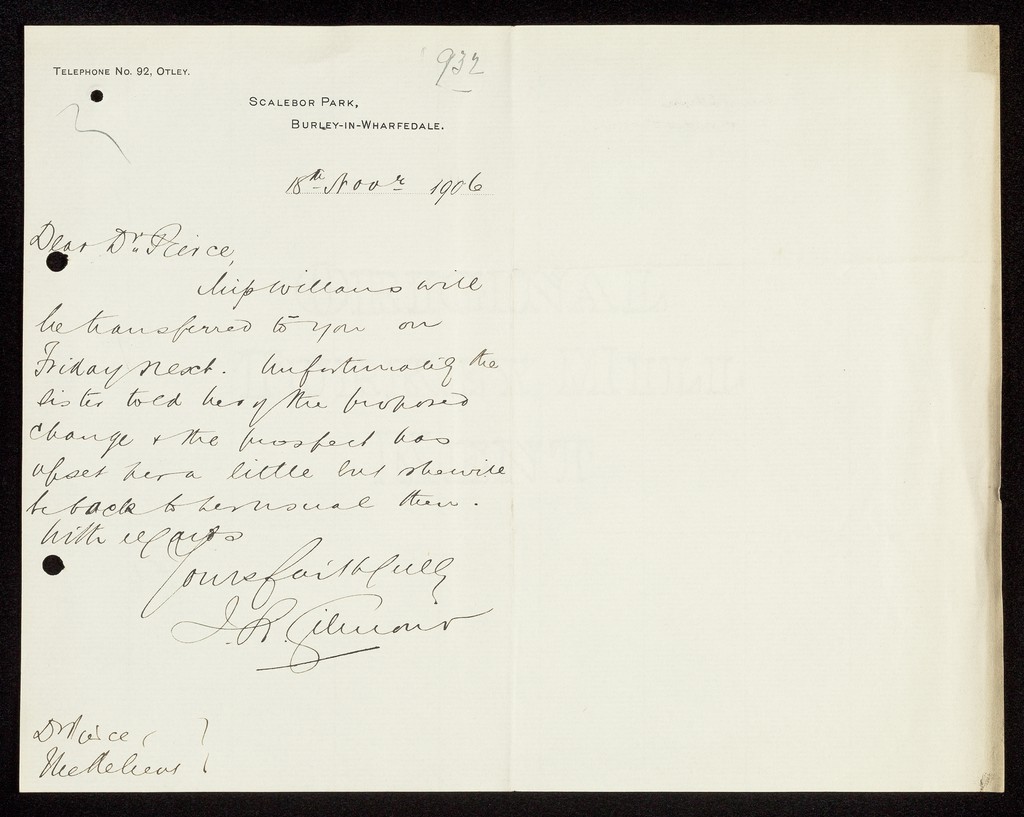 932
TELEPHONE NO. 92, OTLEY.
SCALEBOR PARK,
BURLEY-IN-WHARFEDALE.
18th Novr 1906
Dear Dr. Pierce,
Miss Willans will
be transferred to you on
Friday next. Unfortunately the
sister told her of the proposed
change & the prospect has
upset her a little but she will
be back to her usual then.
With regards
Yours faithfully
J. R. Gilmour
Dr Pierce
The Retreat